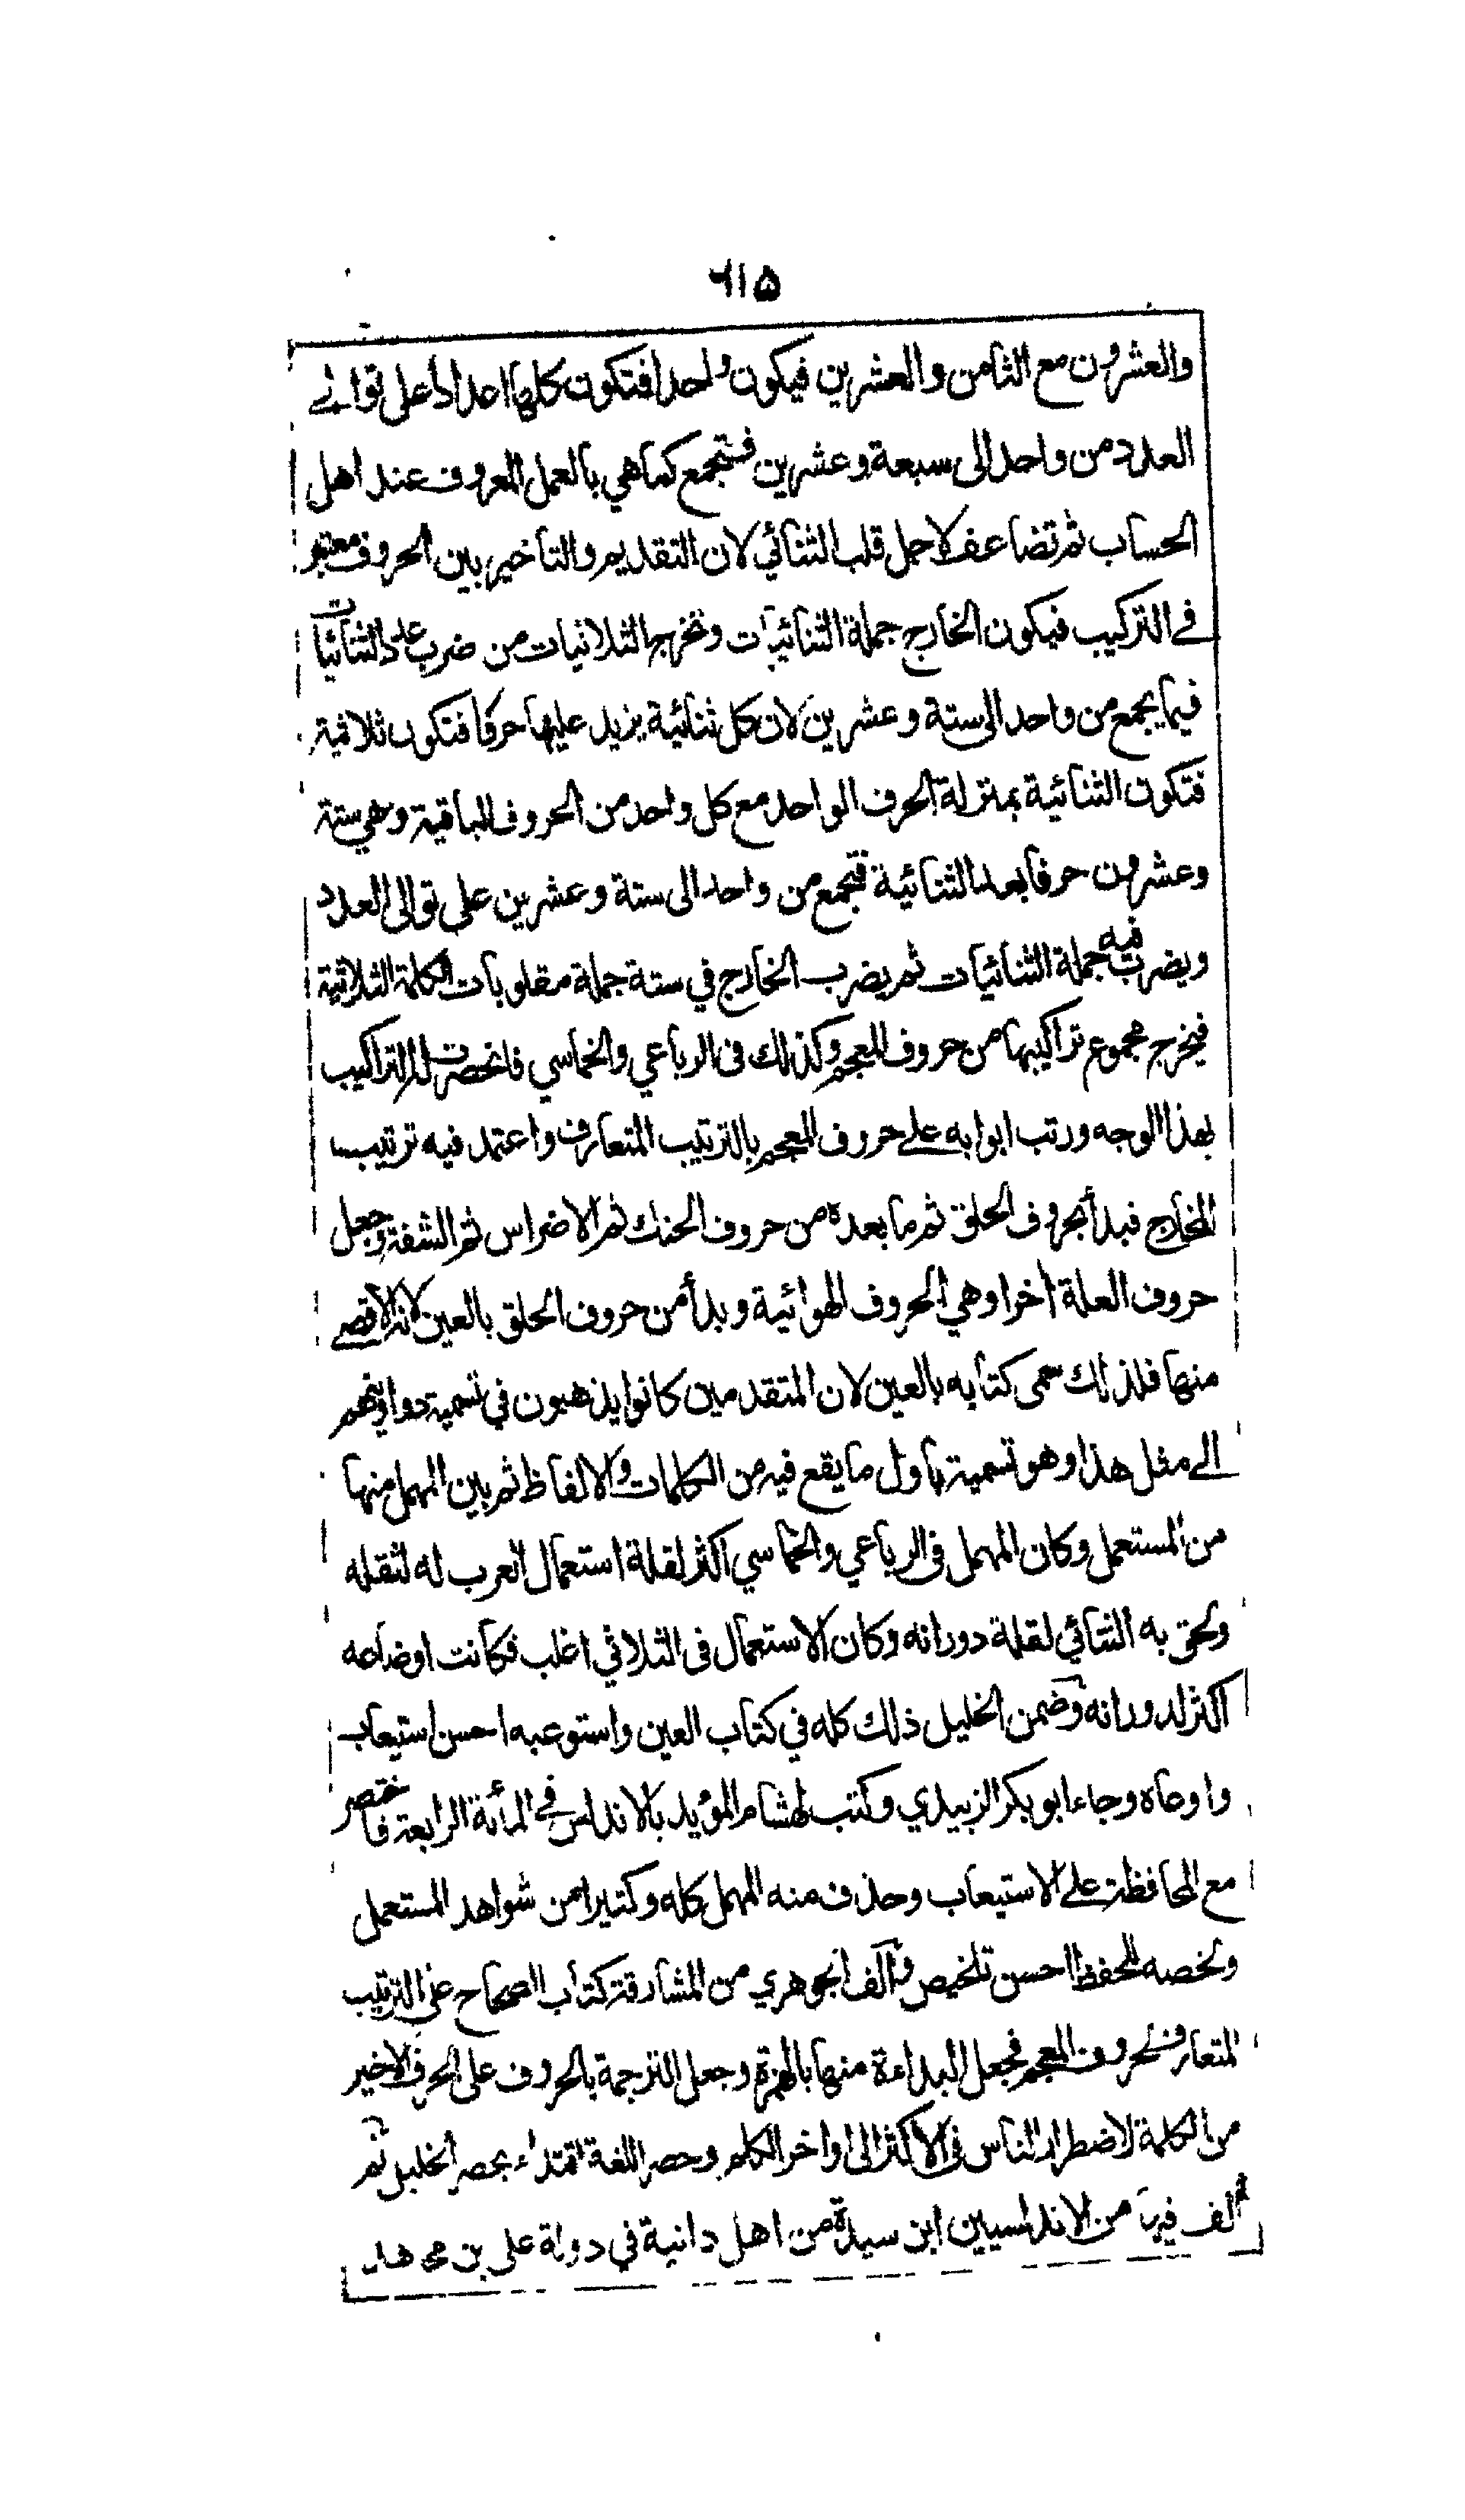 ٦١٥
والعشرون مع الثامن والعشرين فيكون واحدا فتكون كلها اعدادا على توالي
العدد من واحد الى سبعة وعشرين فتجمع كما هي بالعمل المعروف عند اهل
الحساب ثم تضاعف لاجل قلب الثنائي لان التقديم والتاخير بين الحروف معتبر
في التركيب فيكون الخارج جملة الثنائيات وتخرج الثلاثيات من ضرب عدد الثنائيات
فيما يجمع من واحد الى ستة وعشرين لان كل ثنائية يزيد عليها حرفا فتكون ثلاثية
فتكون الثنائية بمنزلة الحرف الواحد مع كل واحد من الحروف الباقية وهي ستة
وعشرون حرفا بعد الثنائية فتجمع من واحد الى ستة وعشرين على توالى العدد
ويضرب فيه جملة الثنائيات ثم يضرب الخارج في ستة جملة مقلوبات الكلمة الثلاثية
فيخرج مجموع تراكيبها من حروف المعجم وكذلك فى الرباعي والخماسي فانحصرت له التراكيب
بهذا الوجه ورتب ابوابه على حروف المعجم بالترتيب المتعارف واعتمد فيه ترتيب
المخارج فبدأ بحروف الحلق ثم ما بعده من حروف الحنك ثم الاضراس ثم الشفة وجعل
حروف العلة آخرا وهي الحروف الهوائية وبدأ من حروف الحلق بالعين لانه الاقصى
منها فلذلك سمى كتابه بالعين لان المتقدمين كانوا يذهبون في تسمية دواوينهم
الى مثل هذا وهو تسمية باول ما يقع فيه من الكلمات والالفاظ ثم بين المهمل منها
من المستعمل وكان المهمل فى الرباعي والخماسي اكثر لقلة استعمال العرب له لثقله
ولحق به الثنائي لقلة دورانه وكان الاستعمال فى الثلاثي اغلب فكانت اوضاعه
اكثر لدورانه وضمن الخليل ذلك كله في كتاب العين واستوعبه احسن استيعاب
واوعاه وجاء ابو بكر الزبيدي وكتب لهشام المؤيد بالاندلس في المأنة الرابعة فاختصر
مع المحافظة على الاستيعاب وحذف منه المهمل كله وكثيرا من شواهد المستعمل
ولخصه للحفظ احسن تلخيص والف الجوهري من المشارقة كتاب الصحاح على الترتيب
المتعارف لحروف المعجم فجعل البداءة منها بالهمزة وجعل الترجمة بالحروف على الحرف الاخير
من الكلمة لاضطرار الناس فى الاكثر الى اواخر الكلم وحصر اللغة اقتداء بحصر الخليل ثم
ألف فيها من الاندلسيين ابن سيدة من اهل دانية في دولة على بن مجاهد